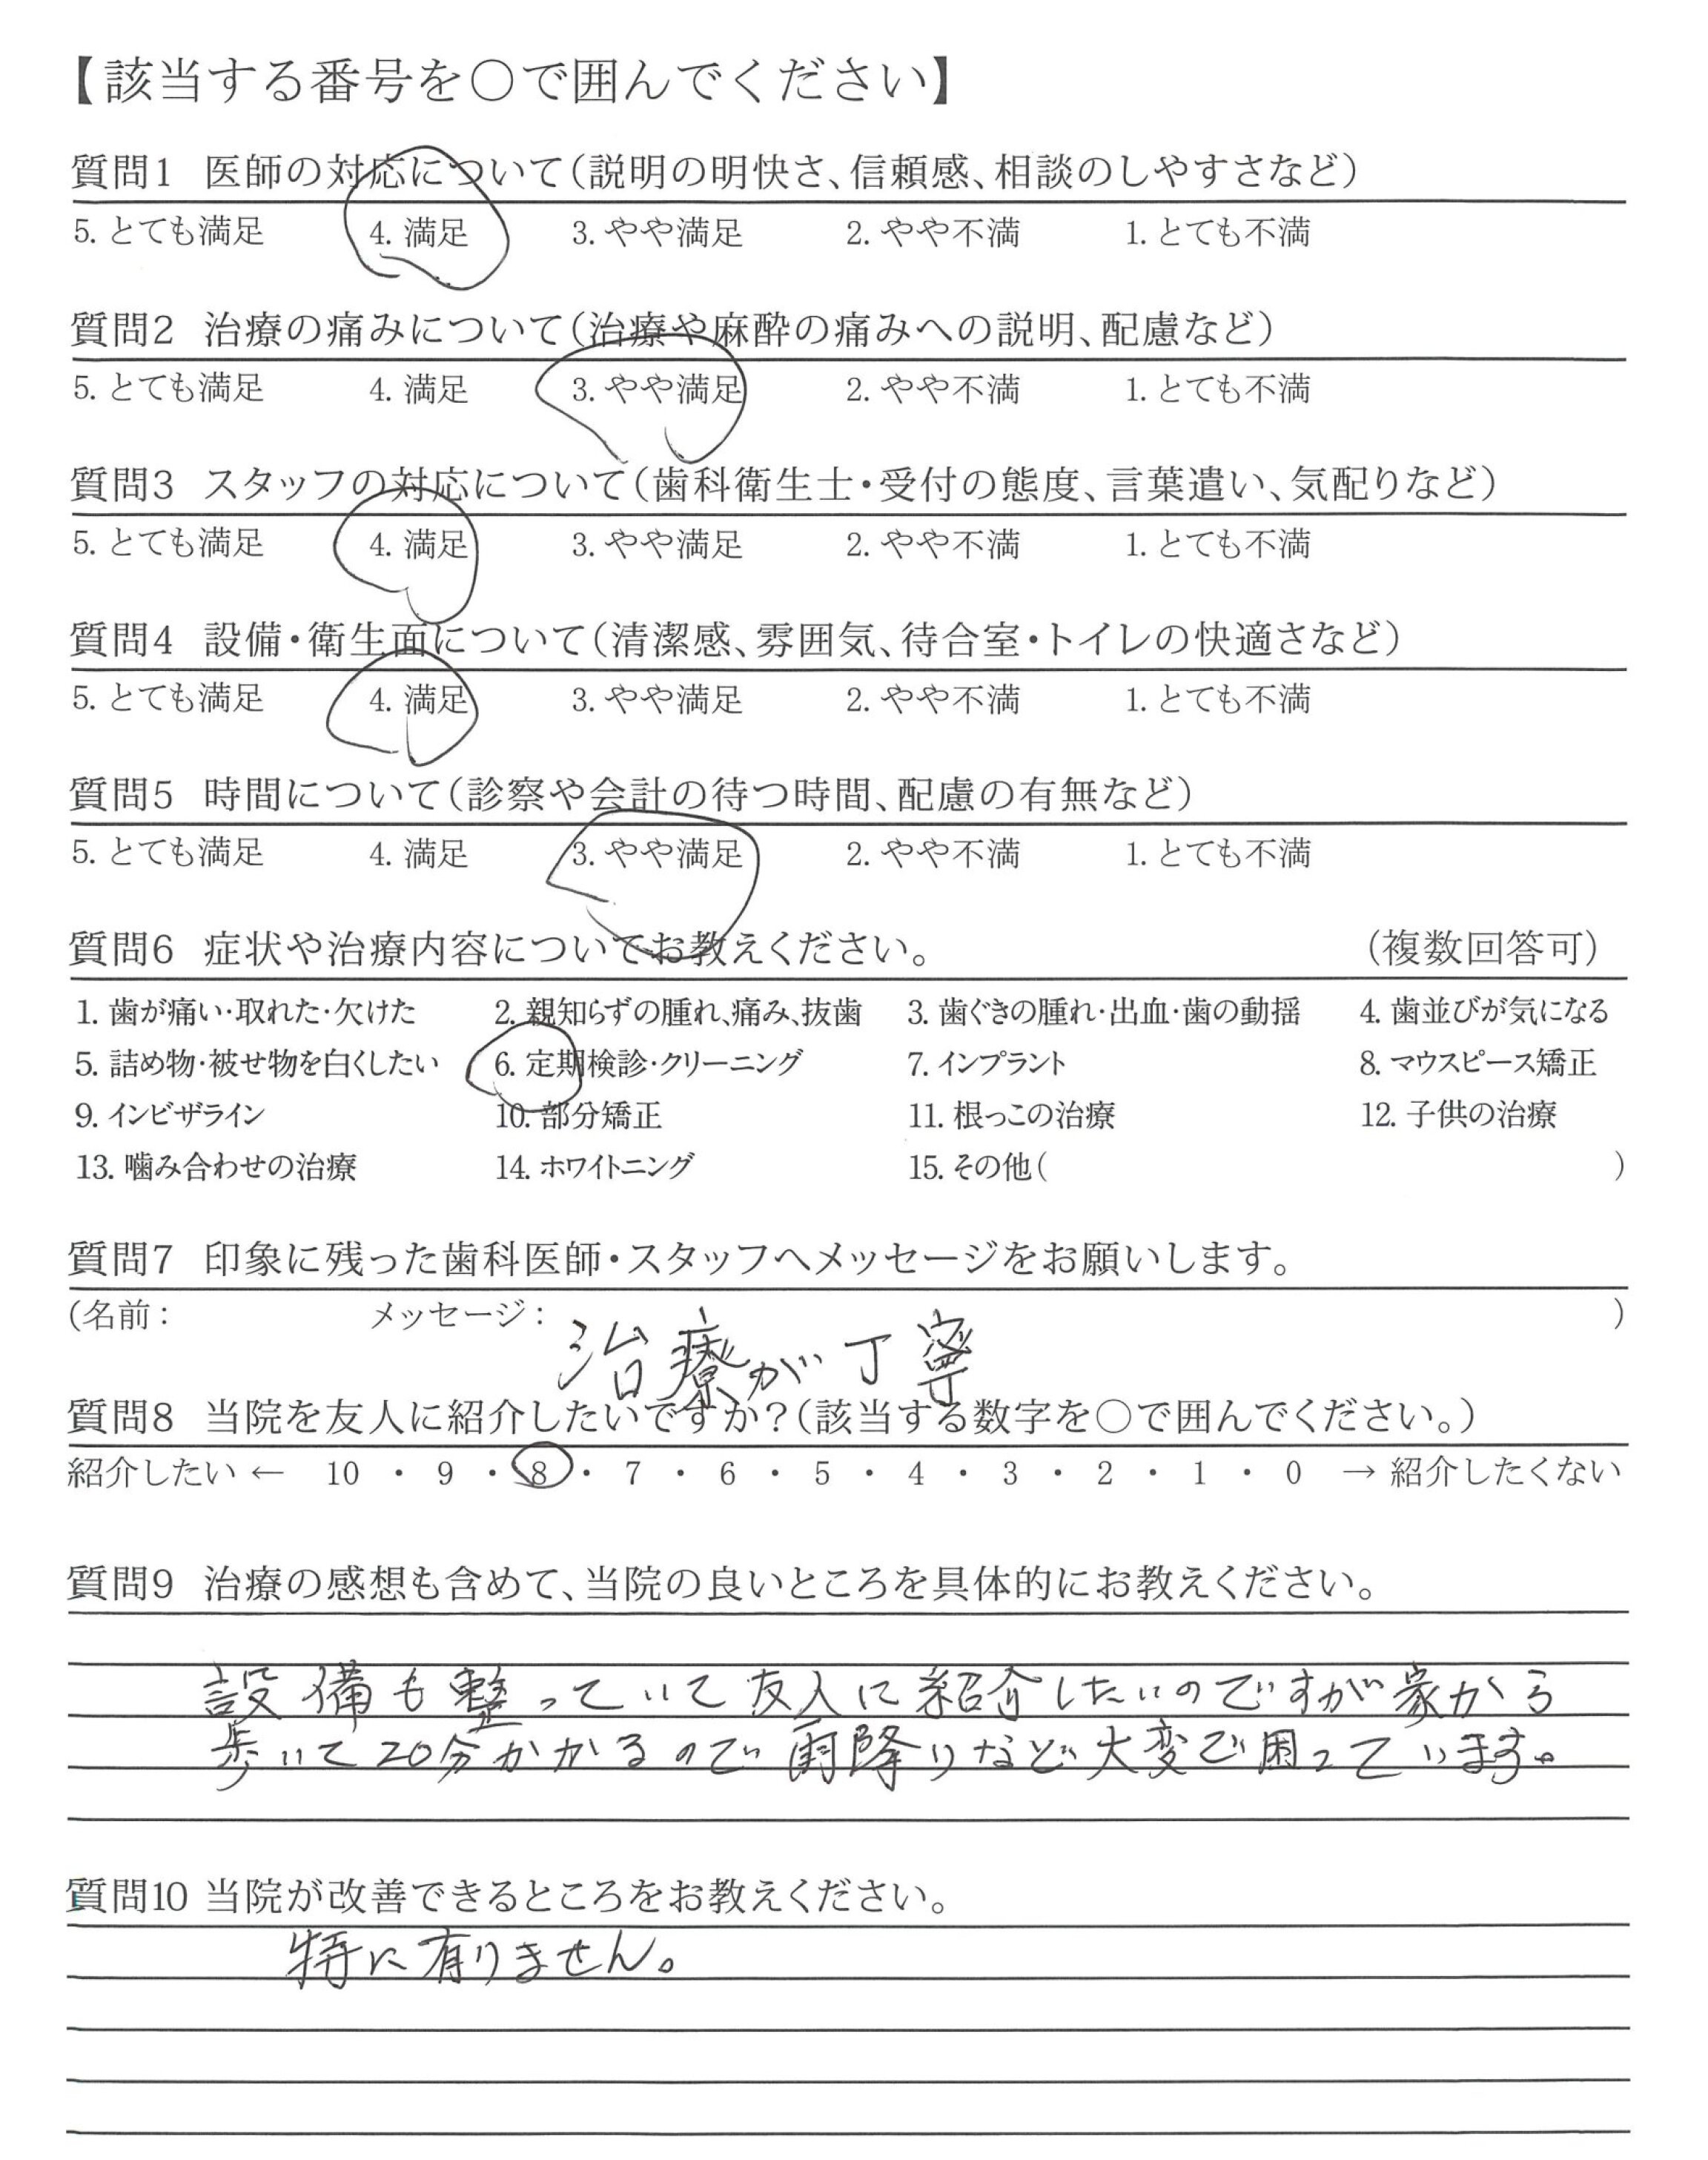 【該当する番号を○で囲んでください】
質問1 医師の対応について(説明の明快さ、信頼感、相談のしやすさなど)
5. とても満足 4. 満足 3. やや満足 2. やや不満 1. とても不満
質問2 治療の痛みについて(治療や麻酔の痛みへの説明、配慮など)
5. とても満足 4. 満足 3. やや満足 2. やや不満 1. とても不満
質問3 スタッフの対応について(歯科衛生士・受付の態度、言葉遣い、気配りなど)
5. とても満足 4. 満足 3. やや満足 2. やや不満 1. とても不満
質問4 設備・衛生面について(清潔感、雰囲気、待合室・トイレの快適さなど)
5. とても満足 4. 満足 3. やや満足 2. やや不満 1. とても不満
質問5 時間について(診察や会計の待つ時間、配慮の有無など)
5. とても満足 4. 満足 3. やや満足 2. やや不満 1. とても不満
質問6 症状や治療内容についてお教えください。 (複数回答可)
1. 歯が痛い・取れた・欠けた 2. 親知らずの腫れ、痛み、抜歯 3. 歯ぐきの腫れ・出血・歯の動揺 4. 歯並びが気になる
5. 詰め物・被せ物を白くしたい 6. 定期検診・クリーニング 7. インプラント 8. マウスピース矯正
9. インビザライン 10. 部分矯正 11. 根っこの治療 12. 子供の治療
13. 噛み合わせの治療 14. ホワイトニング 15. その他( )
質問7 印象に残った歯科医師・スタッフへメッセージをお願いします。
(名前: メッセージ: )
治療が丁寧
質問8 当院を友人に紹介したいですか?(該当する数字を○で囲んでください。)
紹介したい ← 10 ・ 9 ・ 8 ・ 7 ・ 6 ・ 5 ・ 4 ・ 3 ・ 2 ・ 1 ・ 0 → 紹介したくない
質問9 治療の感想も含めて、当院の良いところを具体的にお教えください。
設備も整っていて友人に紹介したいのですが家から
歩いて20分かかるので雨降りなど大変で困っています。
質問10 当院が改善できるところをお教えください。
特に有りません。